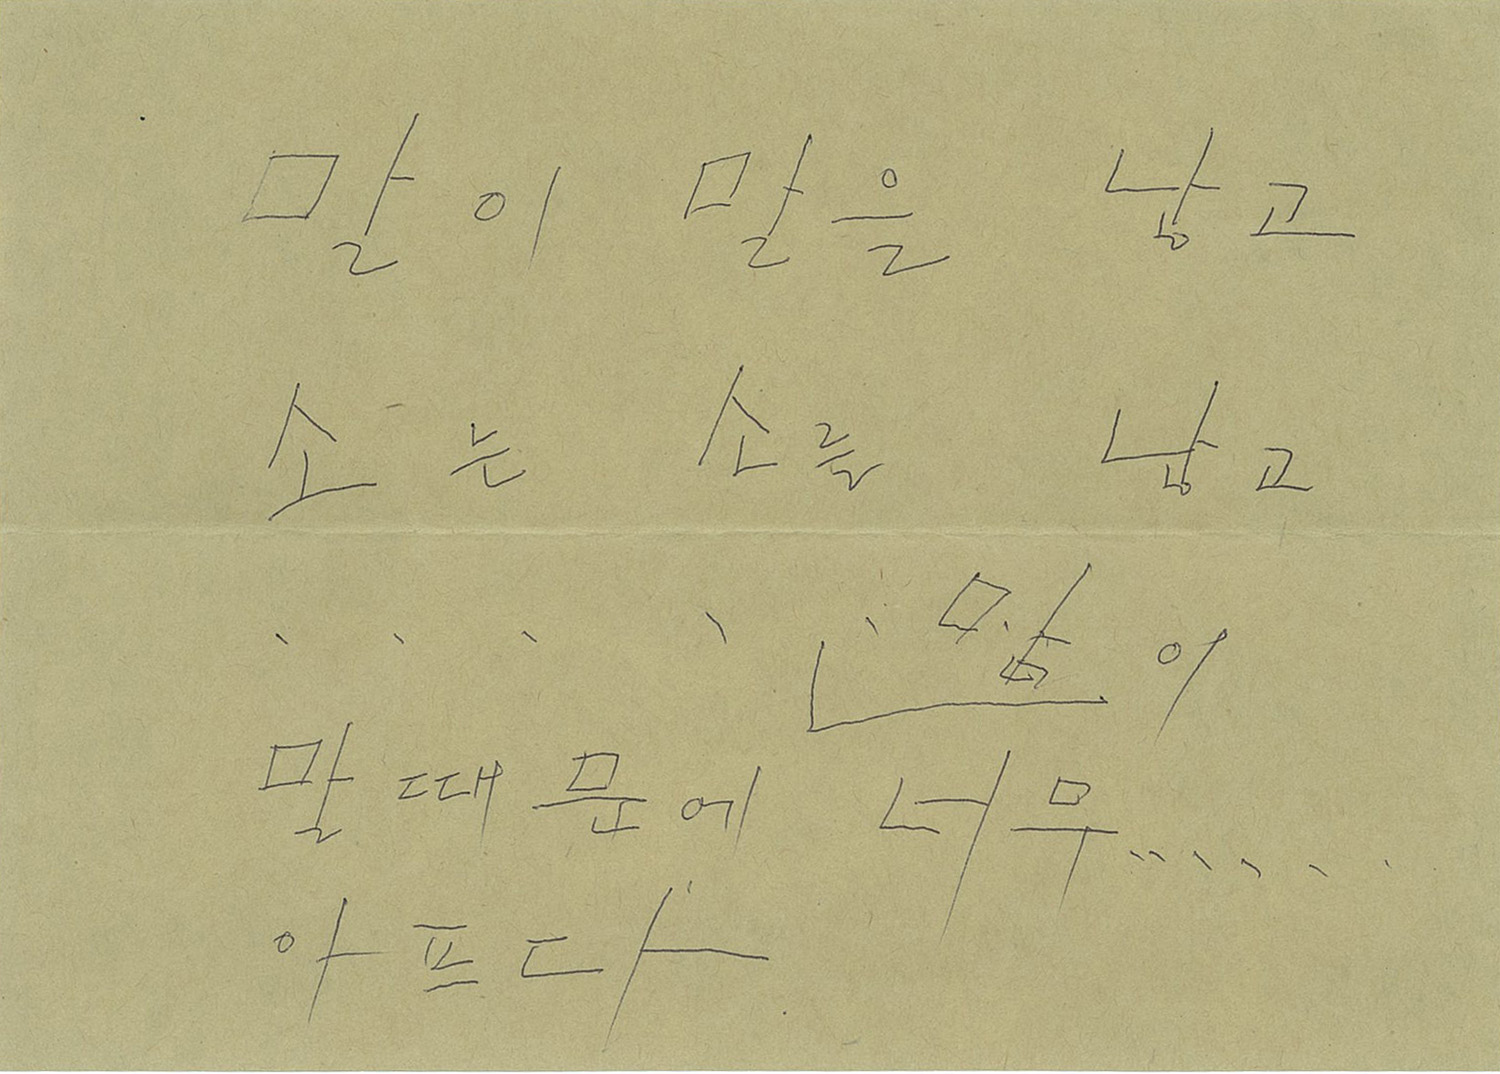 말이 말을 낳고
소는 소를 낳고
. . . . . 맘이
말때문에 너무.......
아프다